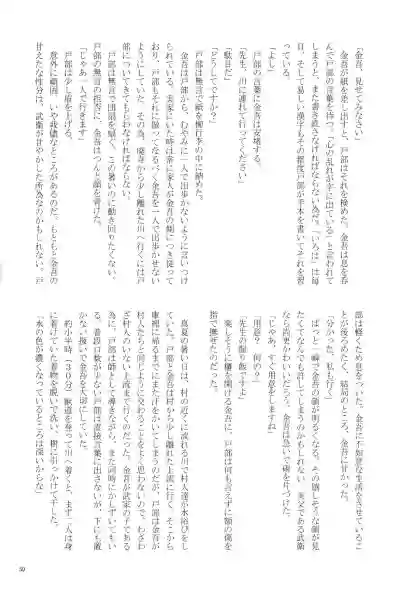 「金吾、見せてみなさい」
　金吾が紙を差し出すと、戸部はそれを検めた。金吾は息を呑
んで戸部の言葉を待つ。「心の乱れが字に出ている」と言われて
しまうと、また書き直さなければならない為だ。「いろは」は毎
日、そして易しい漢字もその都度戸部が手本を書いてそれを習
っている。
「よし」
　戸部の言葉に金吾は安堵する。
「先生、川に連れて行ってください」
「駄目だ」
「どうしてですか？」
　戸部は無言で紙を柳行李の中に納めた。
　金吾は戸部から、むやみに一人で出歩かないように言いつけ
られている。実家にいた時は常に家人が金吾の側につき従って
おり、戸部もそれに倣ってなるべく金吾を一人で出歩かせない
ようにしていた。その為、庵寺から少し離れた川へ行くには戸
部についてきてもらわなければならない。
　戸部は無言で出涸を頷く。この暑いのに動き回りたくない。
　戸部の無言の拒否に、金吾はつんと顔を背けた。
「じゃあ一人で行きます」
　戸部は少し眉を上げる。
　意外に頑固、いや我儘なところがあるのだ。もともと金吾の
甘えたな性分は、武衛が甘やかした所為なのかもしれない。戸
部は軽くため息をついた。金吾に不如意な生活をさせているこ
とが後ろめたく、結局のところ、金吾に甘かった。
「分かった。私も行く」
　ぱっと一瞬で金吾の顔が明るくなる。その嬉しそうな顔が見
たくてなんでも許してしまうのかもしれない。実父である武衛
なら尚更かわいいだろう。金吾は急いで硯を片づけた。
「じゃあ、すぐ用意をしますね」
「用意？　何の？」
「先生の握り飯ですよ」
　楽しそうに櫃を開ける金吾に、戸部は何も言えずに額の傷を
指で撫ぜたのだった。
　真夏の暑い日は、村の近くに流れる川で村人達が水浴びをし
ていた。戸部と金吾は村から少し離れた上流に行く。そこから
　村人たちと同じように交わることをよく思わないので、わざわ
ざ村人のいない上流まで行くのだった。金吾が武家の子である
為に、戸部は師として導きながら、また同時にかしずいてもい
る。普段口数が少ない戸部は直接言葉に出さないが、下にも置
かない扱いで金吾を大切にしていた。
　約小半時（３０分）、獣道を登って川へ着くと、まず二人は身
に着けていた着物を脱いで洗い、樹に引っかけて干した。
「水の色が濃くなっているところは深いからな」
50